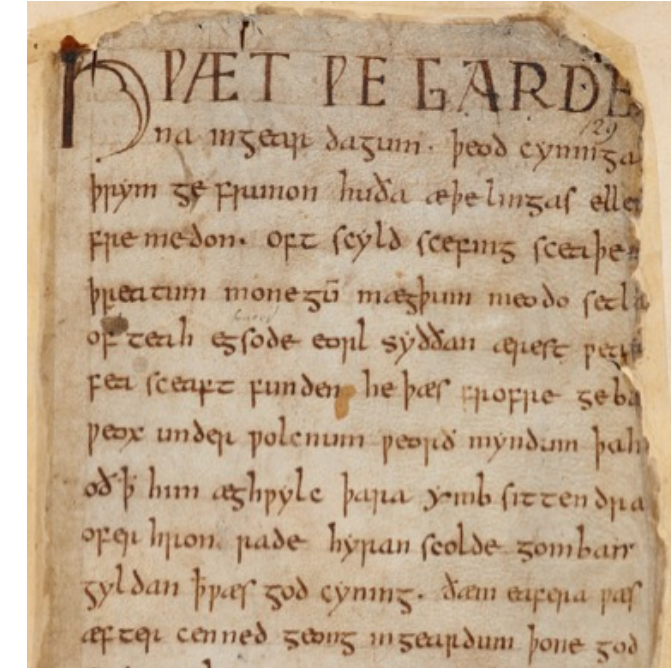 HǷÆT ǷE GARDE
na ingear dagum. þeod cyninga
þrym ge frunon huða æþelingas elle
fre medon. oft scyld scefing sceaþe
þreatum monegū mægþum meodo setla
of teah egsode eorl syððan ærest ƿear
fea sceaft funden he þæs frofre geba
ƿeox under ƿolcnum ƿeorð myndum þah
oð ꝥ him æghƿylc þara ymb sittendra
ofer hron rade hyran scolde gomban
gyldan ꝥ ƿæs god cyning. ðæm eafera ƿæs
æfter cenned geong in geardum þone god
129